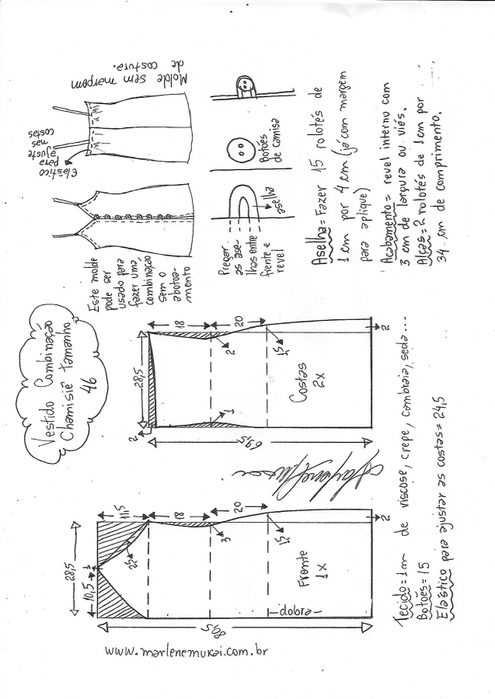 Vestido Combinação
Chamisiê tamanho
46
Este molde
pode ser
usado para
fazer uma
combinação
sem o
abotoa-
mento
Elástico
para
ajuste
nas
costas
Molde sem margem
de costura.
Pregar
as ase-
lhas entre
frente e
revel
aselha
Botões
de camisa
Aselha= Fazer 15 rolotês de
1 cm por 4 cm (já com margem
para aplique)
Acabamento= revel interno com
3 cm de largura ou viés.
Alças= 2 rolotês de 1cm por
34 cm de comprimento.
28,5
11,5
18
20
10,5
1
2,5
3
1,5
2
Frente
1x
dobra
80,5
28,5
18
20
2
1
2
1,5
2
Costas
2x
69,5
Tecido=1m de viscose, crepe, cambraia, seda...
Botões=15
Elástico para ajustar as costas= 24,5
www.marlenemukai.com.br